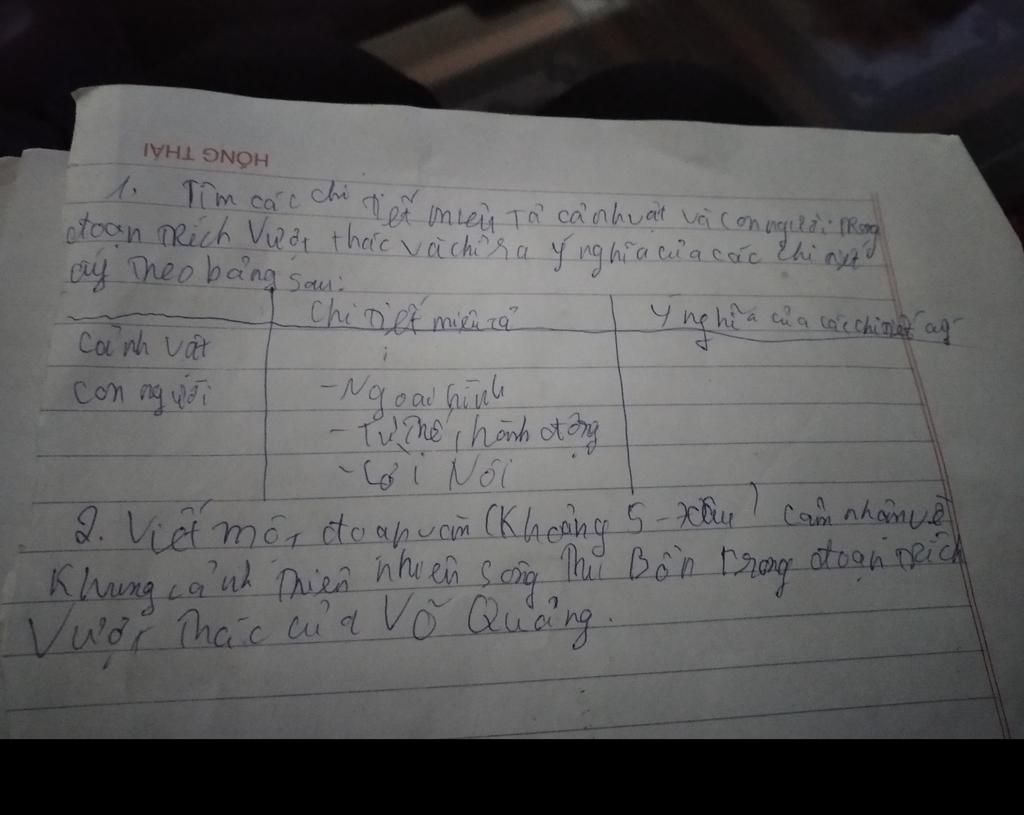 HỒNG THÁI
1. Tìm các chi tiết miêu tả cảnh vật và con người trong
đoạn trích Vượt thác và chỉ ra ý nghĩa của các chi tiết
ấy theo bảng sau:
Chi tiết miêu tả Ý nghĩa của các chi tiết ấy
Cảnh vật
Con người - Ngoại hình
- Tư thế, hành động
- Lời Nói
2. Viết một đoạn văn (Khoảng 5- câu) cảm nhận về
Khung cảnh thiên nhiên sông Thu Bồn trong đoạn trích
Vượt thác của Võ Quảng.